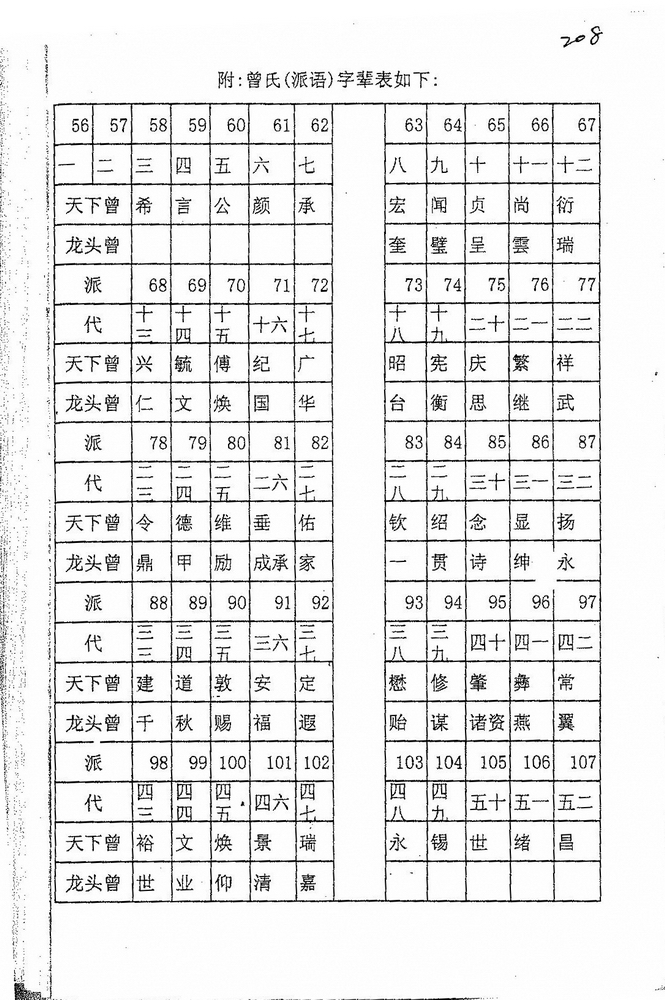 208
附:曾氏(派语)字辈表如下:
56 57 58 59 60 61 62 63 64 65 66 67
一 二 三 四 五 六 七 八 九 十 十一 十二
天下曾 希 言 公 颜 承 宏 闻 贞 尚 衍
龙头曾 奎 璧 呈 雲 瑞
派 68 69 70 71 72 73 74 75 76 77
代 十三 十四 十五 十六 十七 十八 十九 二十 二一 二二
天下曾 兴 毓 傅 纪 广 昭 宪 庆 繁 祥
龙头曾 仁 文 焕 国 华 台 衡 思 继 武
派 78 79 80 81 82 83 84 85 86 87
代 二三 二四 二五 二六 二七 二八 二九 三十 三一 三二
天下曾 令 德 维 垂 佑 钦 绍 念 显 扬
龙头曾 鼎 甲 励 成承 家 一 贯 诗 绅 永
派 88 89 90 91 92 93 94 95 96 97
代 三三 三四 三五 三六 三七 三八 三九 四十 四一 四二
天下曾 建 道 敦 安 定 懋 修 肇 彝 常
龙头曾 千 秋 赐 福 遐 贻 谋 诸资 燕 翼
派 98 99 100 101 102 103 104 105 106 107
代 四三 四四 四五 四六 四七 四八 四九 五十 五一 五二
天下曾 裕 文 焕 景 瑞 永 锡 世 绪 昌
龙头曾 世 业 仰 清 嘉